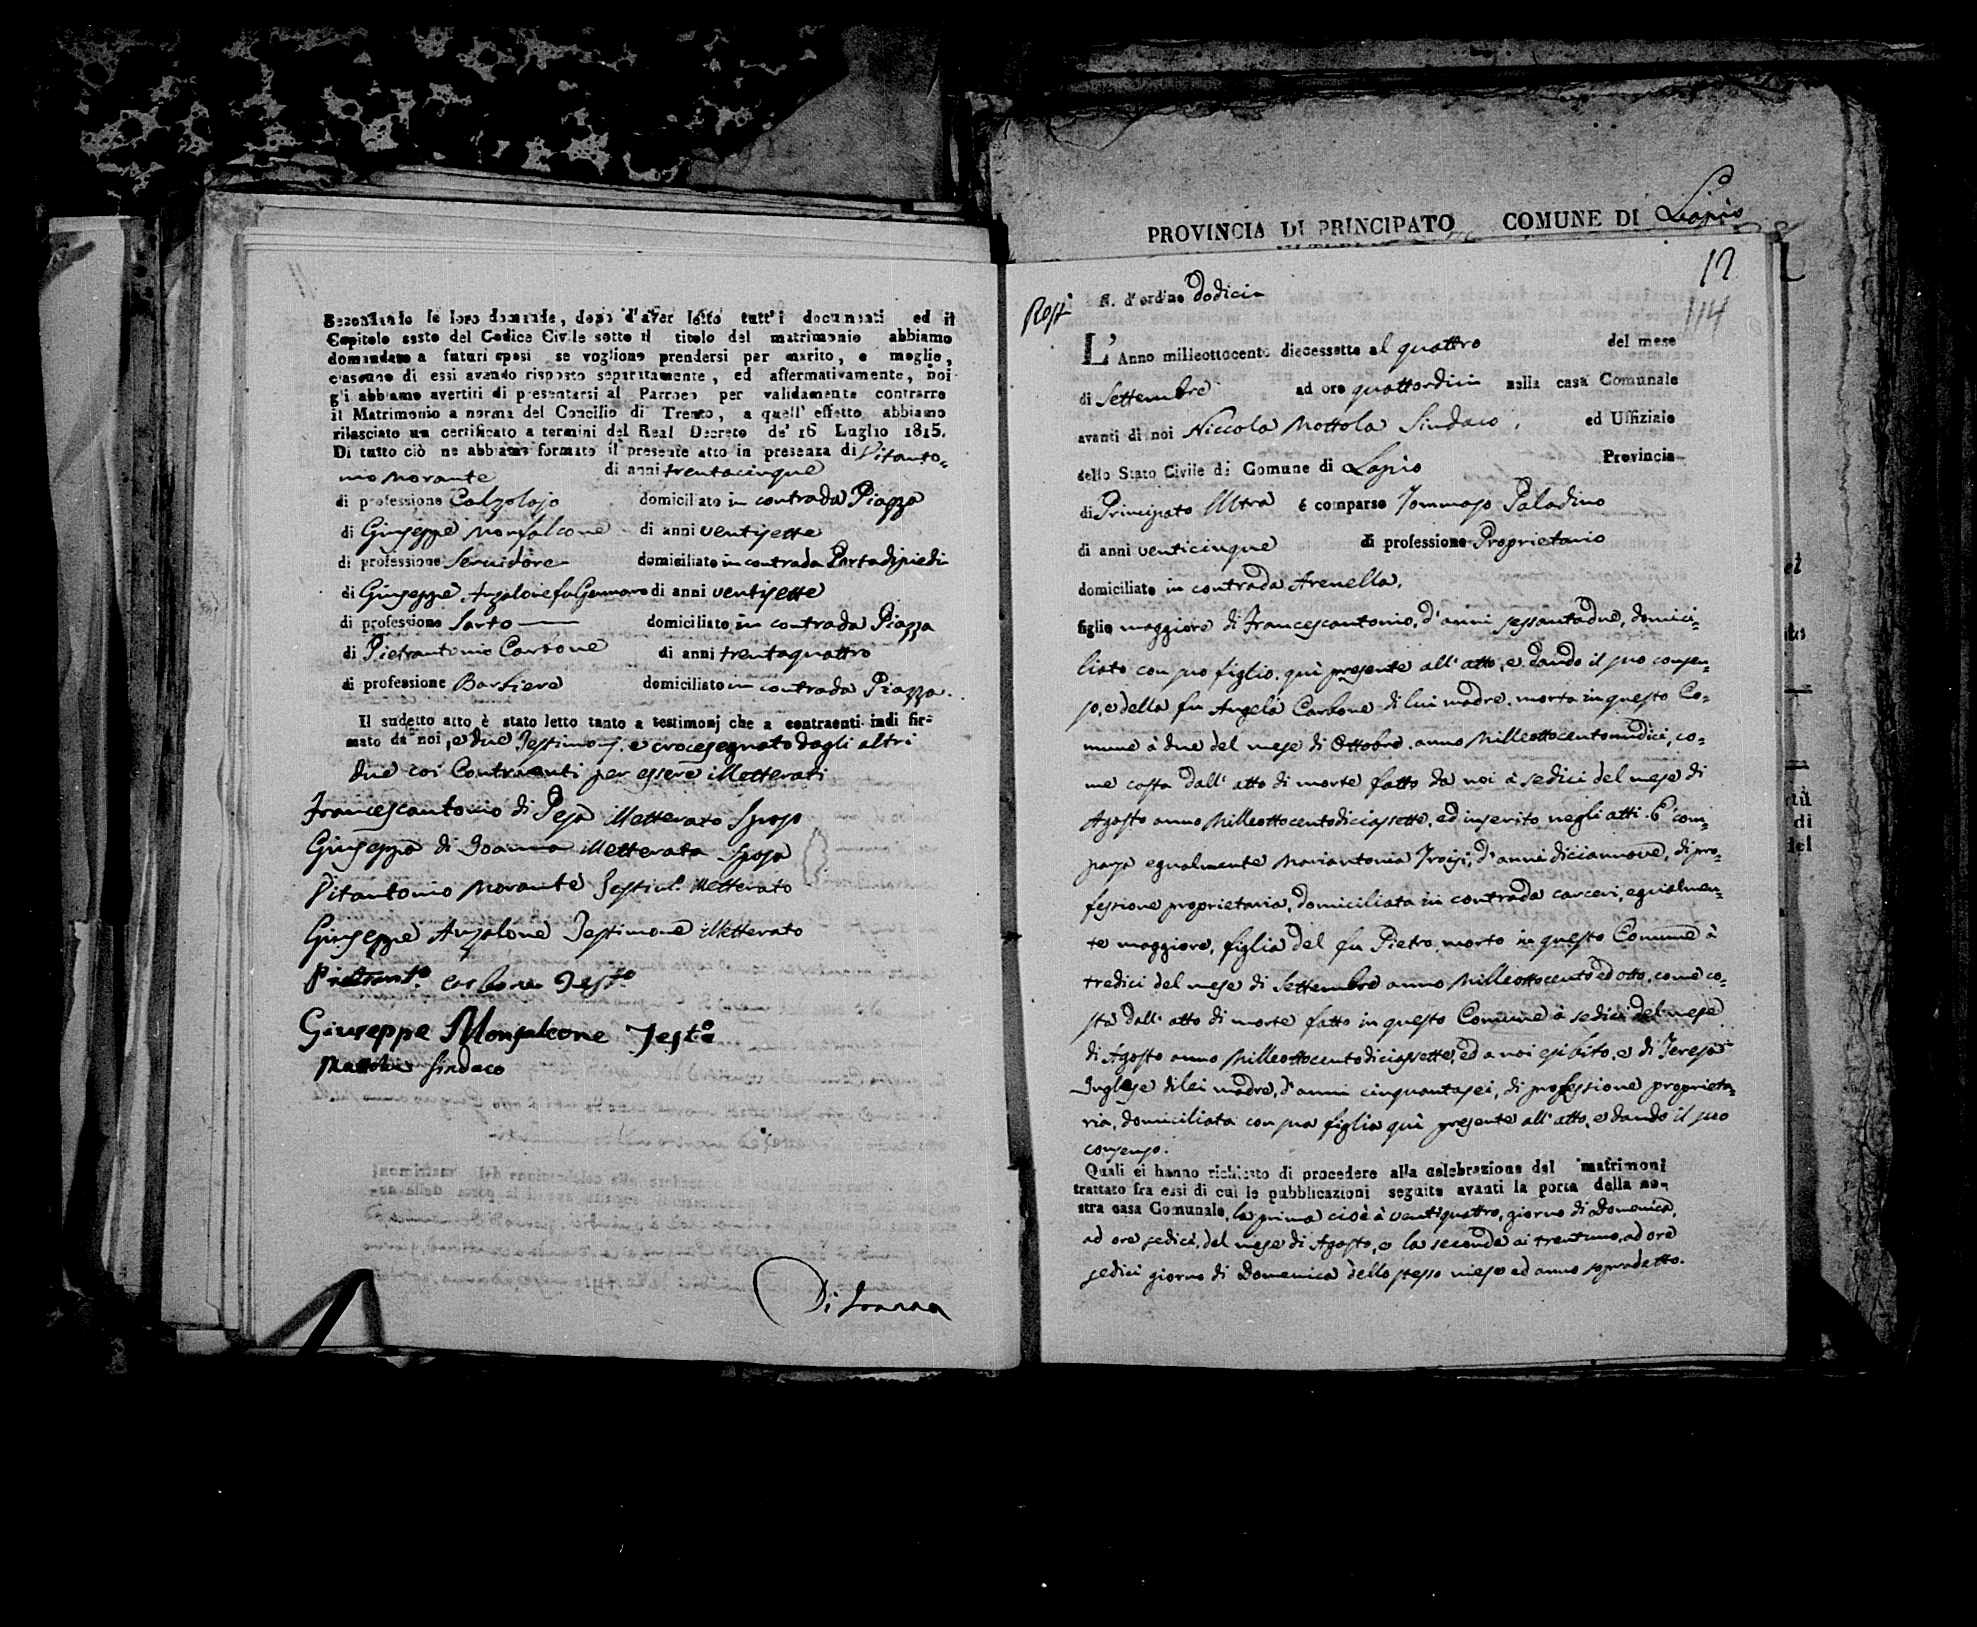 Secondando le loro domande, dopo d'aver letto tutt'i documenti ed il
Capitolo sesto del Codice Civile sotto il titolo del matrimonio abbiamo
domandato a futuri sposi se vogliono prendersi per marito, e moglie,
ciascuno di essi avendo risposto separatamente, ed affermativamente, noi
gli abbiamo avertiti di presentarsi al Parroco per validamente contrarre
il Matrimonio a norma del Concilio di Trento, a quell' effetto abbiamo
rilasciato un certificato a termini del Real Decreto de' 16 Luglio 1815.
Di tutto ciò ne abbiamo formato il presente atto in presenza di Vitanto-
nio Morante di anni trentacinque
di professione Calzolajo domiciliato in contrada Piazza
di Giuseppe Monfalcone di anni ventisette
di professione Servidore domiciliato in contrada Portadipiedi
di Giuseppe Anzalone fu Gennaro di anni ventisette
di professione Sarto domiciliato in contrada Piazza
di Pietrantonio Carbone di anni trentaquattro
di professione Barbiere domiciliato in contrada Piazza.
Il sudetto atto è stato letto tanto a testimonj che a contraenti indi fir-
mato da noi, e due Testimonj, e crocesegnato dagli altri
due coi Contraenti per essere illetterati
Francescantonio di Pesa illetterato Sposo
Giuseppa di Ioanna illetterata Sposa
Vitantonio Morante Testim.e illetterato
Giuseppe Anzalone Testimone illetterato
Pietrant.o Carbone Test.o
Giuseppe Monfalcone Test.e
Mottola Sindaco
Di Ioanna
PROVINCIA DI PRINCIPATO COMUNE DI Lapio
12
114
N. d'ordine Dodici
L' Anno milleottocento diecessette al quattro del mese
di Settembre ad ore quattordici nella casa Comunale
avanti di noi Niccola Mottola Sindaco, ed Uffiziale
dello Stato Civile di Comune di Lapio Provincia
di Principato Ultra è comparso Tommaso Paladino
di anni venticinque di professione Proprietario
domiciliato in contrada Arenella,
figlio maggiore di Francescantonio, d'anni sessantadue, domici-
liato con suo figlio, quì presente all'atto, e dando il suo consen-
so, e della fu Angela Carbone di lui madre, morta in questo Co-
mune à due del mese di Ottobre, anno Milleottocentoundici, co-
me costa dall'atto di morte fatto da noi à sedici del mese di
Agosto anno Milleottocentodiciassette, ed inserito negli atti. E' com-
parsa egualmente Mariantonia Troisi, d'anni diciannove, di pro-
fessione proprietaria, domiciliata in contrada carceri, egualmen-
te maggiore, figlia del fu Pietro, morto in questo Comune à
tredici del mese di Settembre anno Milleottocento ed otto, come co-
sta dall'atto di morte fatto in questo Comune à sedici del mese
di Agosto anno Milleottocentodiciassette, ed a noi esibito, e di Teresa
Inglese di lei madre, d'anni cinquantasei, di professione proprieta-
ria, domiciliata con sua figlia quì presente all'atto, e dando il suo
consenso.
Quali ci hanno richiesto di procedere alla celebrazione del matrimoni
trattato fra essi di cui le pubblicazioni seguite avanti la porta della no-
stra casa Comunale, la prima cioè à ventiquattro, giorno di Domenica,
ad ore sedici, del mese di Agosto, e la seconda ai trentuno, ad ore
sedici giorno di Domenica dello stesso mese ed anno sopradetto.